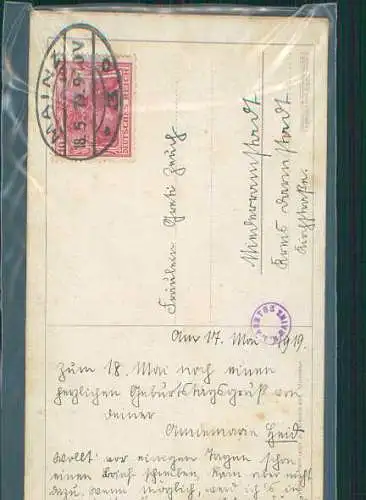 MAINZ
18.5.19. 9-10V
DEUTSCHES REICH
10
Fräulein Greti Zeuch
Niederramstadt
Kreis Darmstadt
Kirchstraße.
Am 17. Mai 1919.
Zum 18. Mai noch einen
herzlichen Geburtstagsgruß von
deiner
Annemarie Heid.
Wollt vor einigen Tagen schon
einen Brief schreiben, kam aber nicht
dazu. Wenn möglich, werd ich's